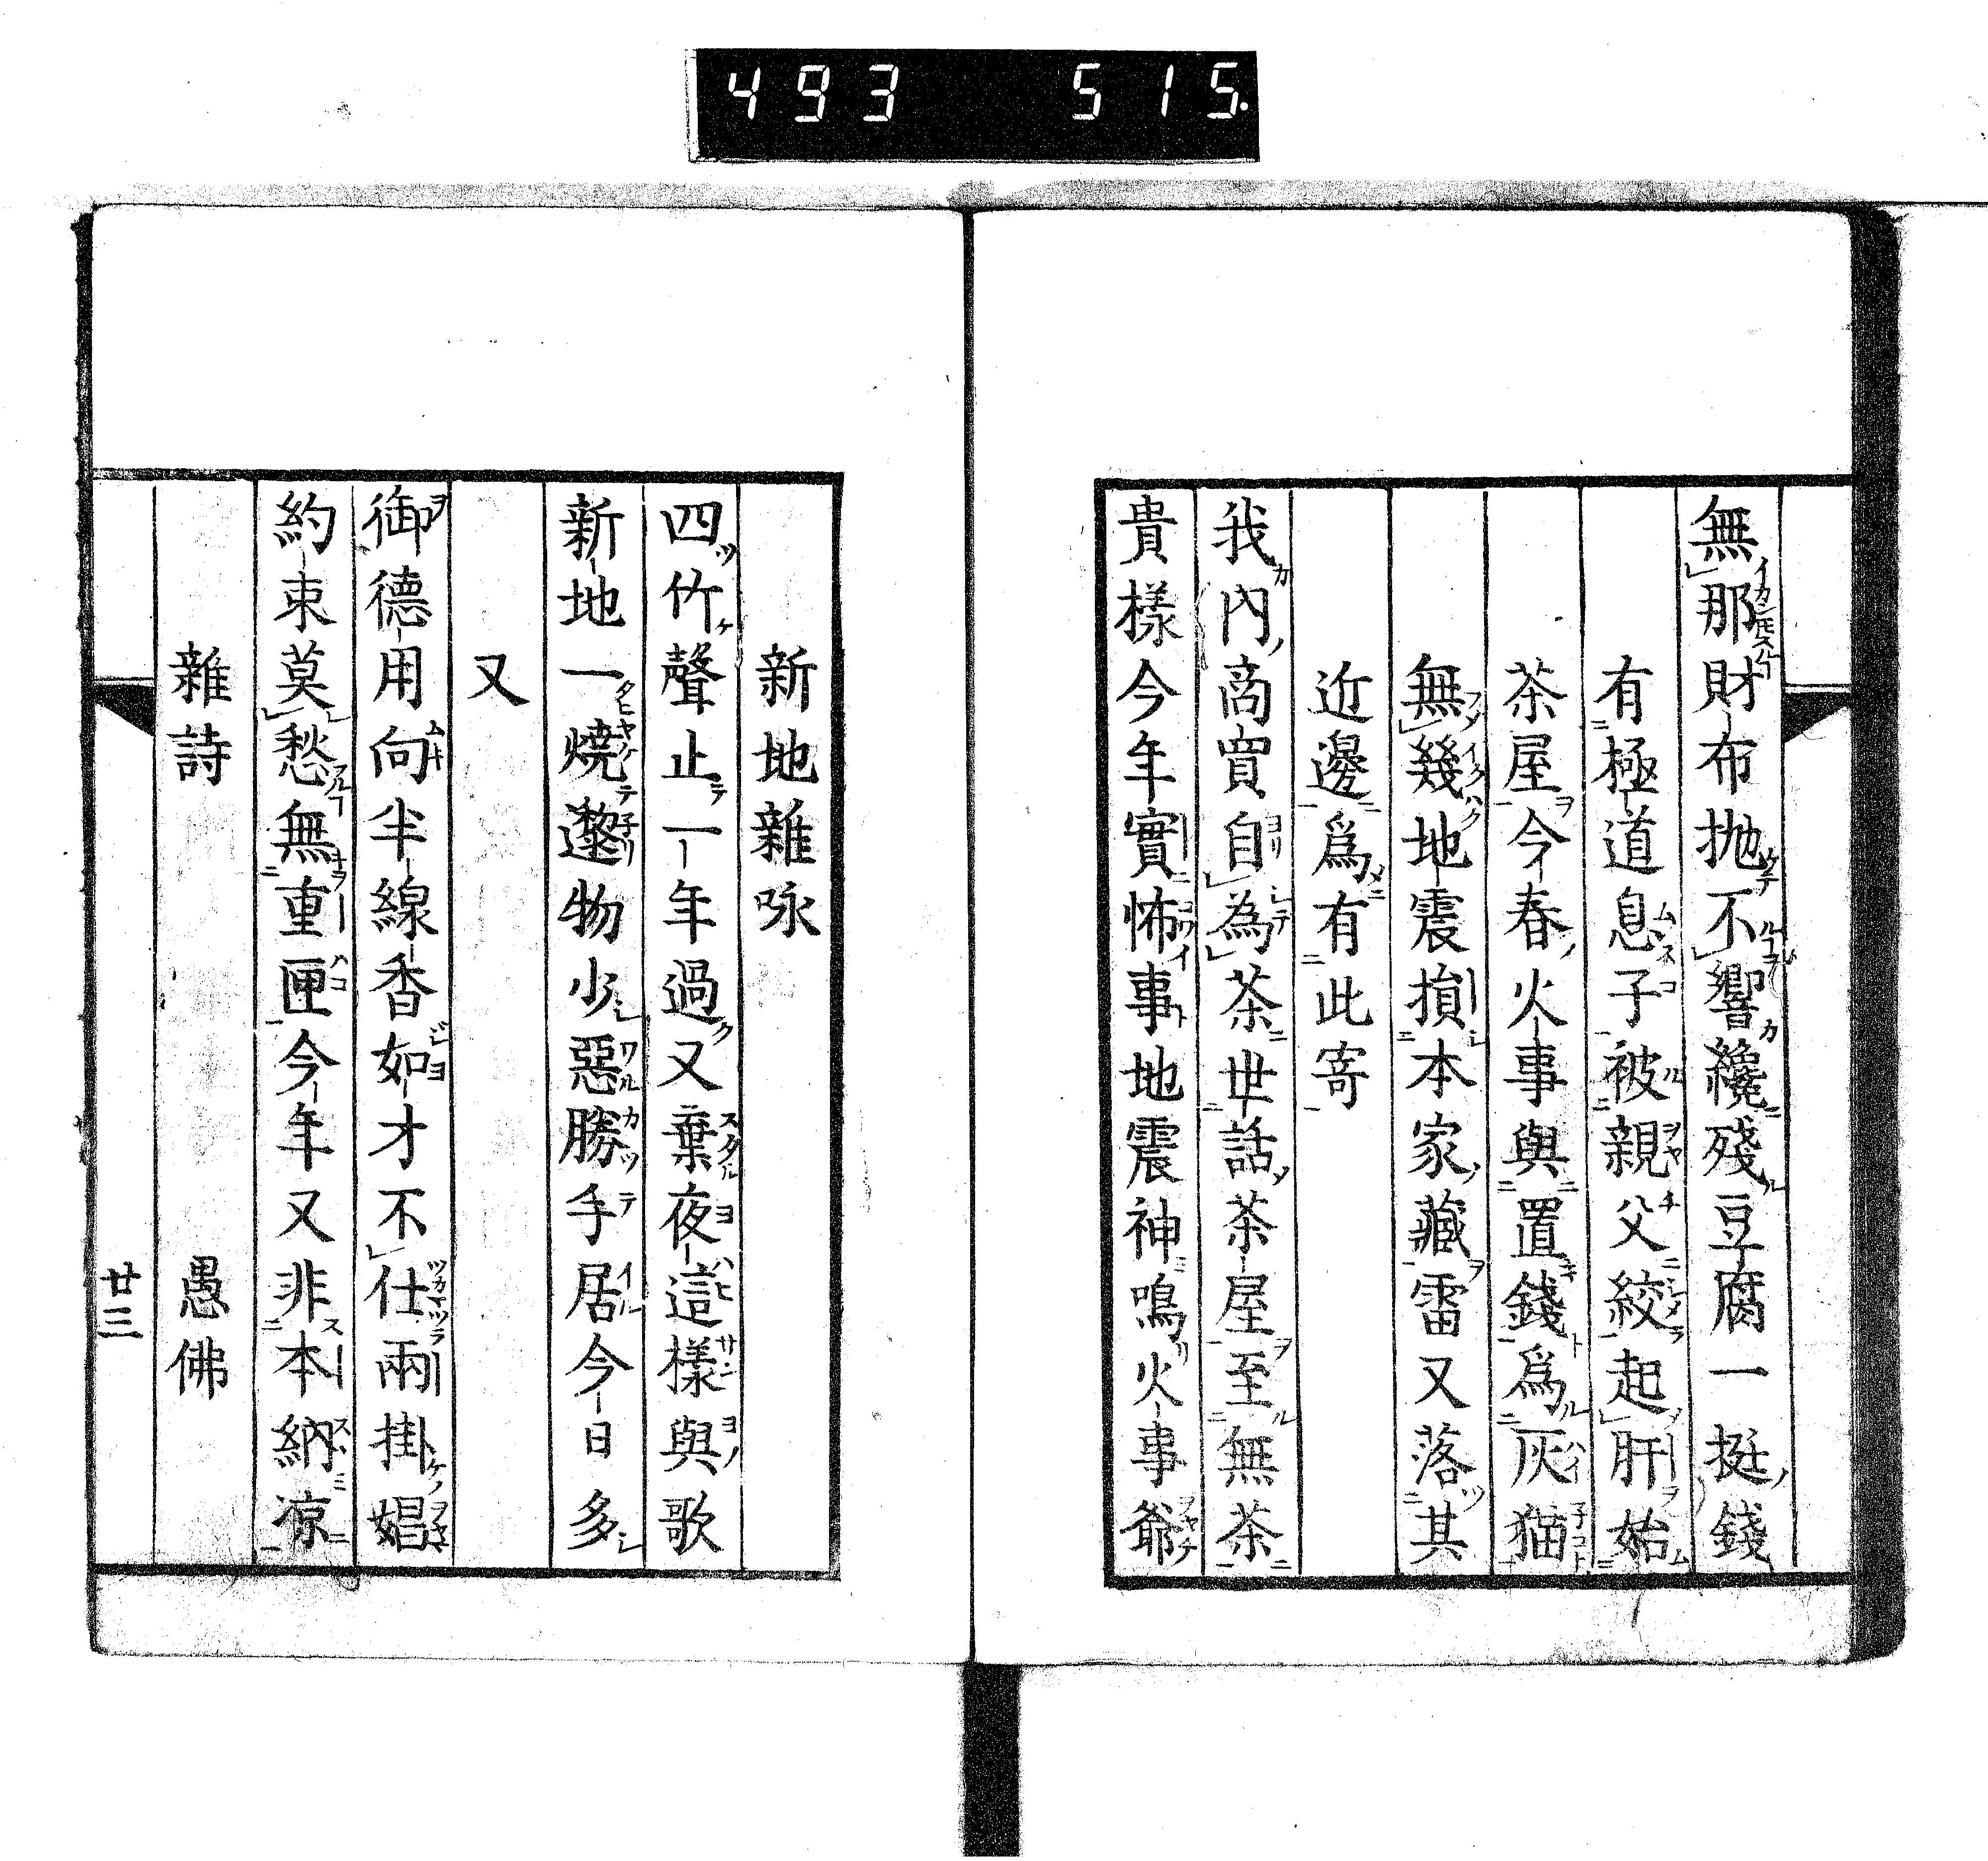 493 515.
無那財布抛不響纔殘豆腐一挺錢
有極道息子被親父絞起肝始
茶屋今春火事與置錢爲灰猫
無幾地震損本家藏雷又落其
近邊爲有此寄
我內商賣自為茶世話茶屋至無茶
貴樣今年實怖事地震神鳴火事爺
新地雜咏
四竹聲止一年過又棄夜這樣與歌
新地一燒邌物少惡勝手居今日多
又
御德用向半線香如才不仕兩掛娼
約束莫愁無重匣今年又非本納凉
雜詩 愚佛
廿三